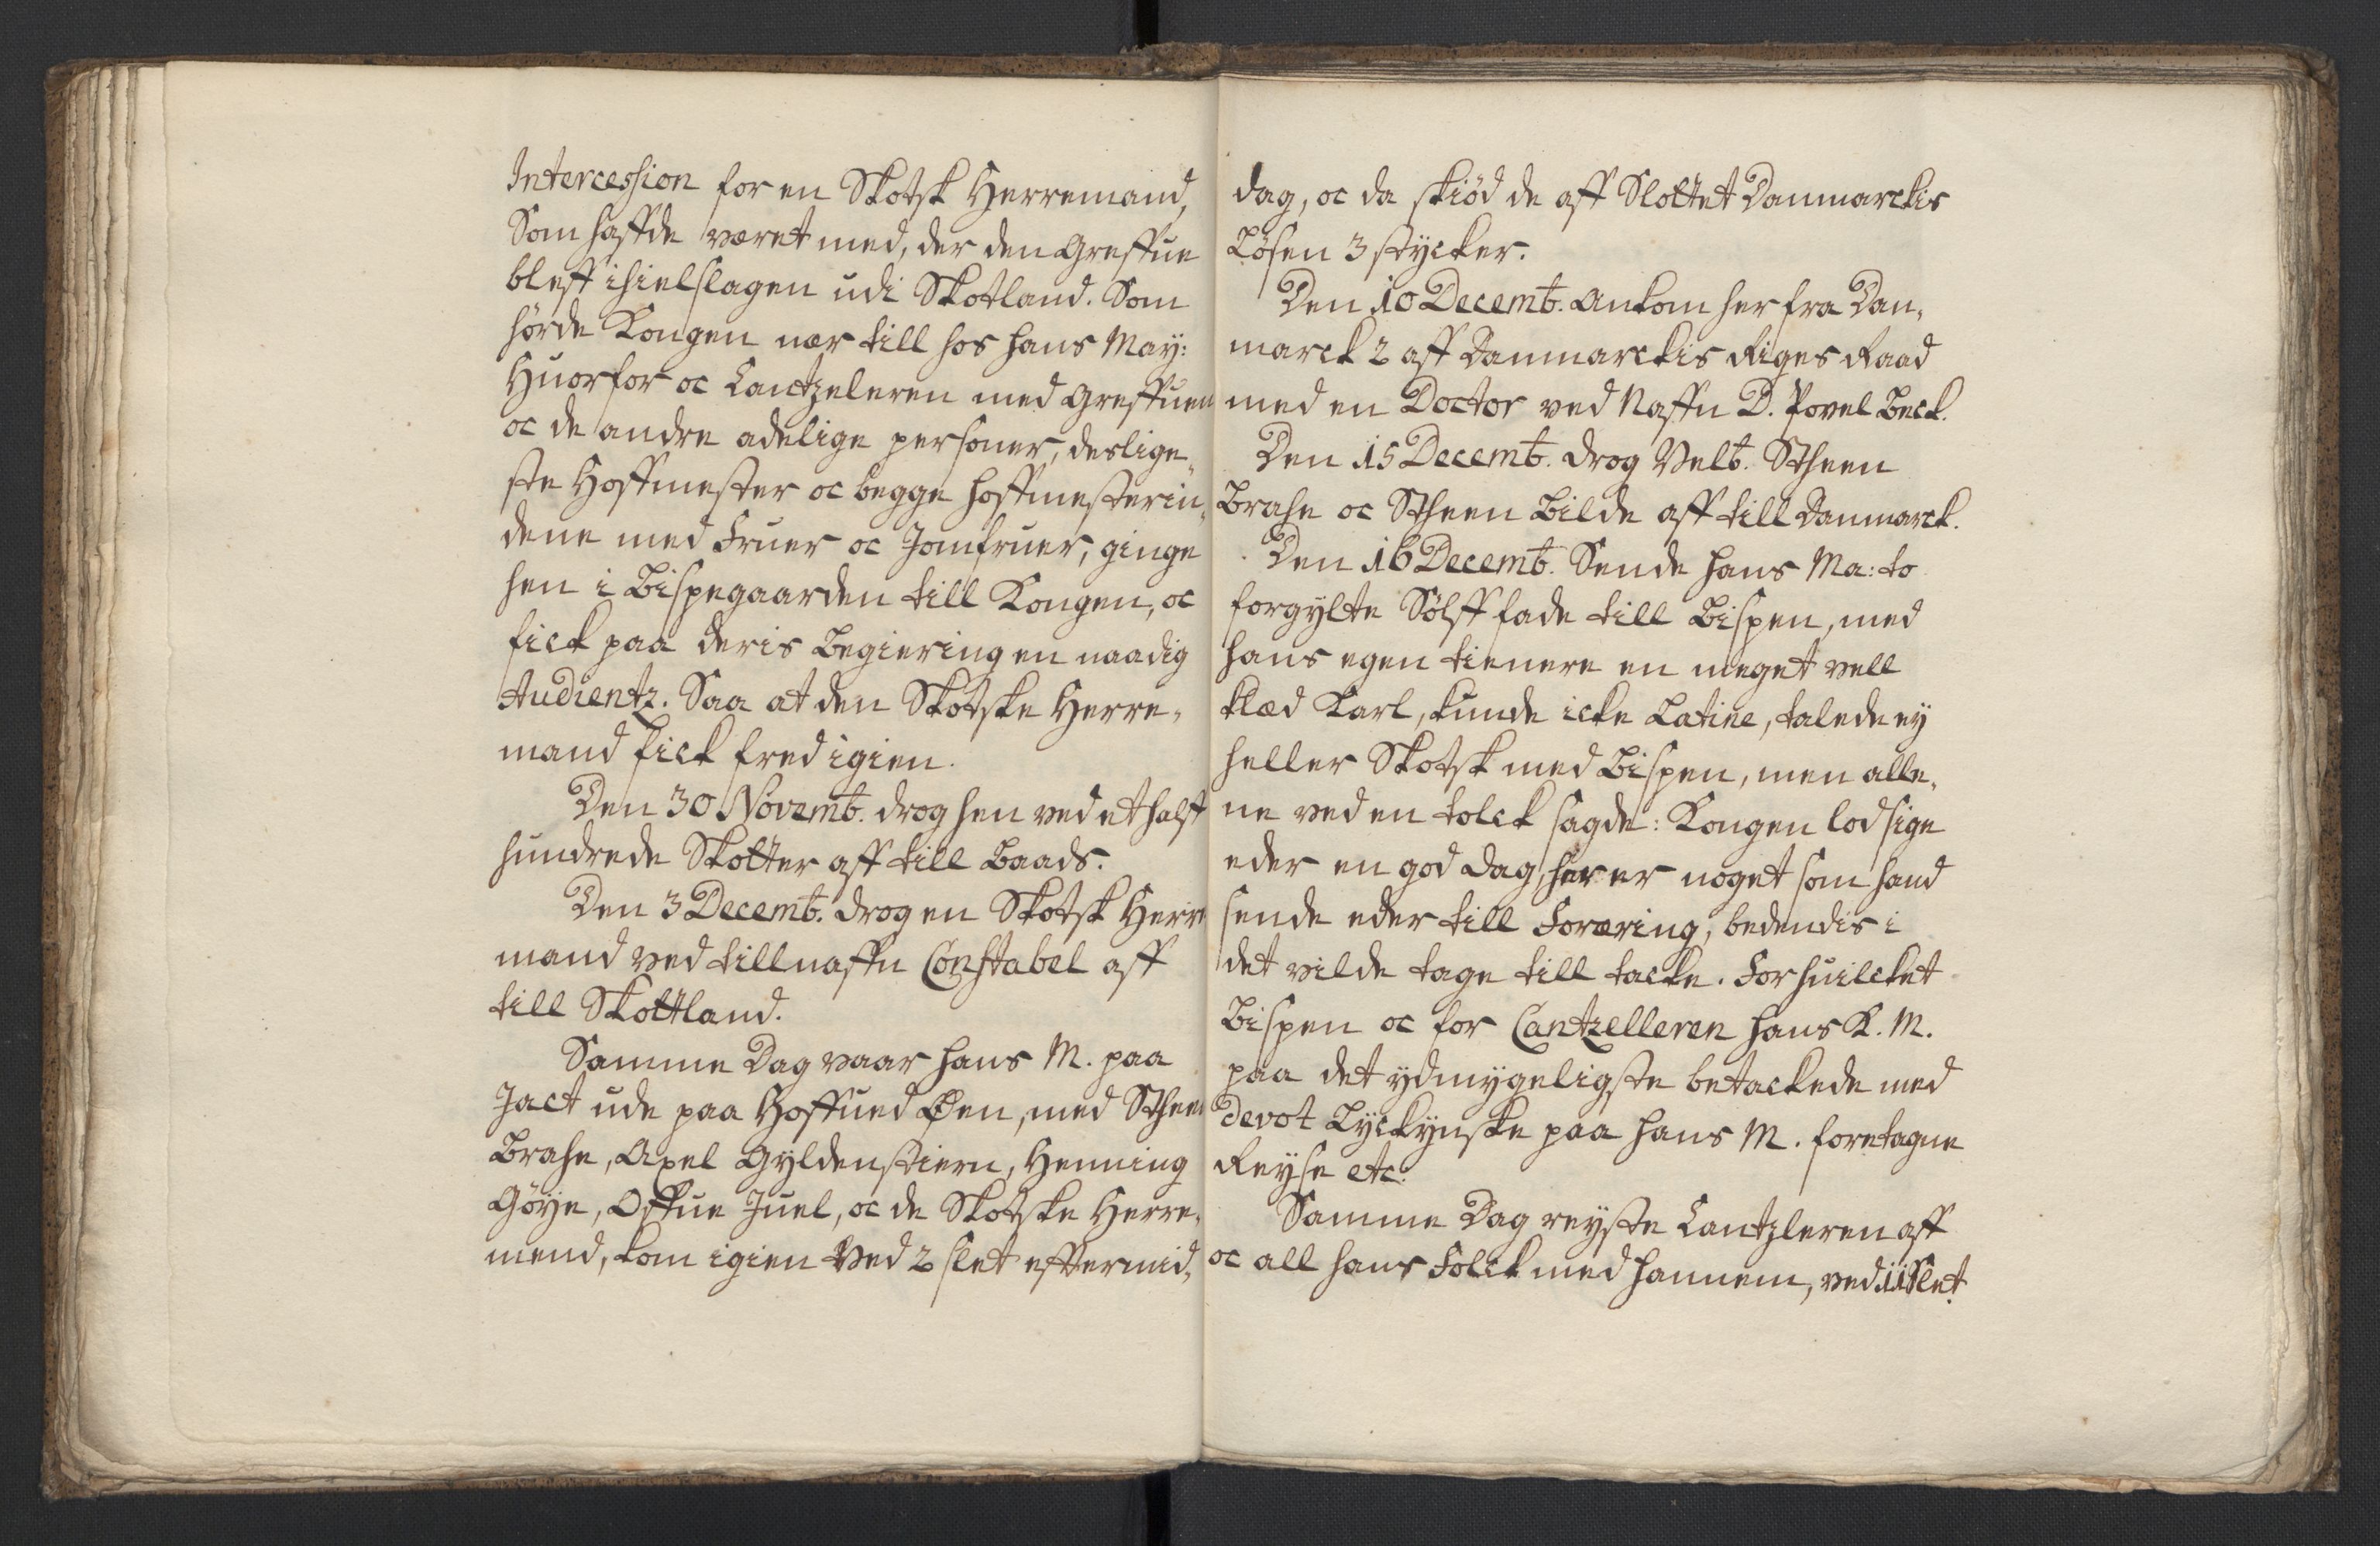 Intercession for en Skotsk Herremand,
Som haffde været med, der den Greffue
bleff ihielslagen udi Skotland. Som
hørde Kongen nær till hos hans May:
Huorfor oc Cantzeleren med Greffuen
oc de andre adelige personer, deslige„
ste Hoffmester oc begge hoffmesterin„
dene med Fruer oc Jomfruer, ginge
hen i Bispegaarden till Kongen, oc
fick paa deris Begiering en naadig
Audientz. Saa at den Skotske Herre„
mand fick fred igien.
Den 30 Novemb. drog hen ved et halft
hundrede Skotter aff till Baads.
Den 3 Decemb. drog en Skotsk Herre
mand ved tillnaffn Constabel aff
till Skottland.
Samme Dag vaar hans M. paa
Jact ude paa Hoffued Øen, med Stheen
Brahe, Axel Gyldenstiern, Henning
Gøye, Offue Juel, oc de Skotske Herre„
mend, kom igien Ved 2 slet effermid„
dag, oc da skiød de aff Slottet Danmarckis
Løsen 3 stycker.
Den 10 Decemb. Ankom her fra Dan„
marck 2 aff Danmarckis Riges Raad
med en Doctor ved Naffn D. Povel Beck.
Den 15 Decemb. drog Velb. Stheen
Brahe oc Stheen Bilde aff till Danmarck.
Den 16 Decemb. Sende hans Ma: to
forgylte Sølff fade till Bispen, med
hans egen tienere en meget vell
klæd Karl, kunde icke Latine, talede ey
heller Skotsk med Bispen, men alle„
ne ved en tolck sagde: Kongen lod sige
eder en god Dag, her er noget som hand
sende eder till Foræring, bedendis i
det vilde tage till tacke. For huilcket
Bispen oc for Cantzelleren hans K. M.
paa det ydmygeligste betackede med
devot Lyckynske paa hans M. foretagne
Reyse etc.
Samme Dag reyste Cantzleren aff
oc all hans Folck med hannem, ved 11 Slet